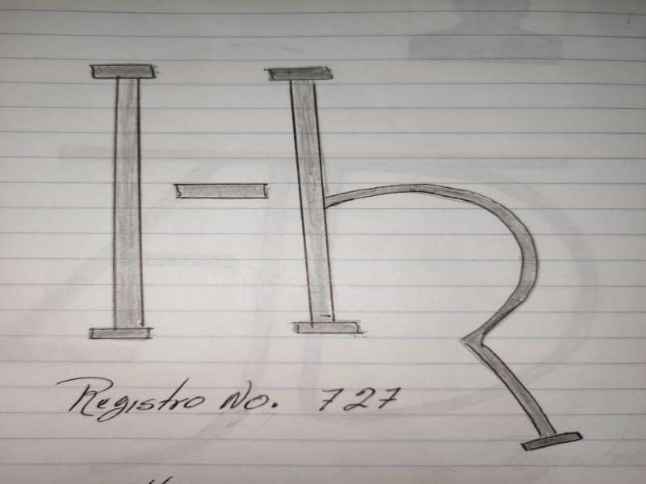 Registro No. 727